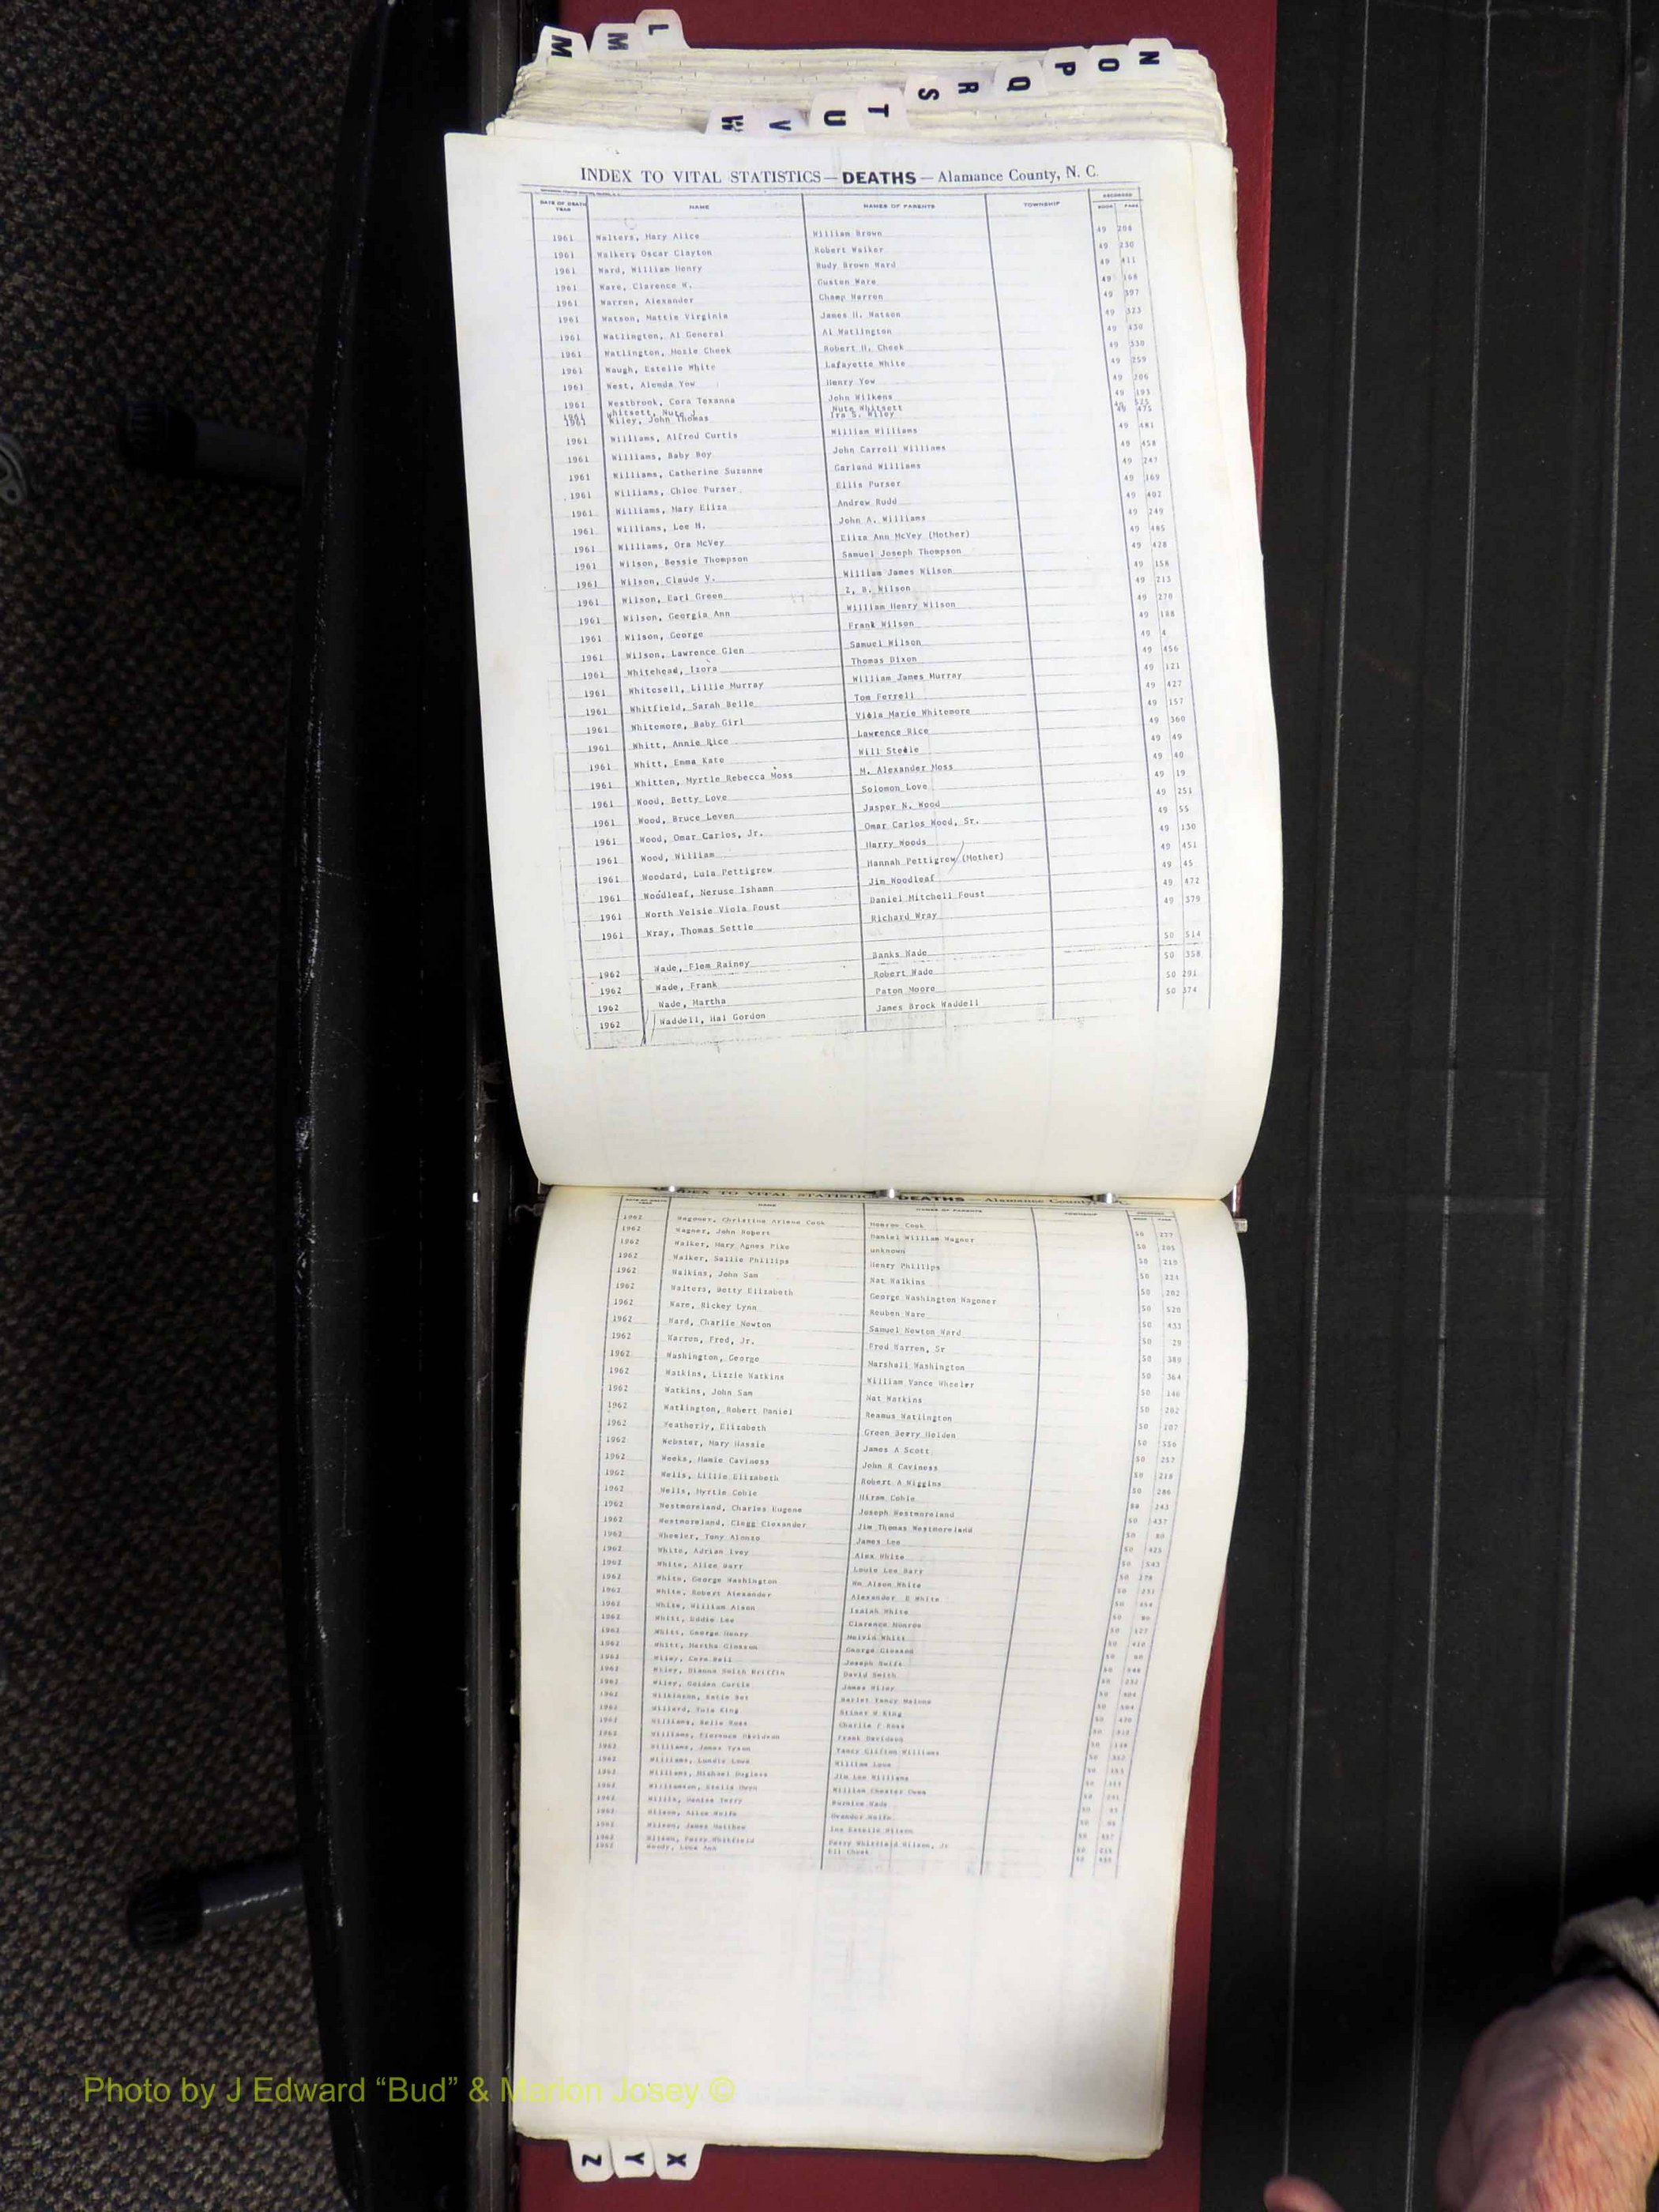 L
M
M
N
O
P
Q
R
S
T
U
V
W
INDEX TO VITAL STATISTICS—DEATHS—Alamance County, N. C.
DATE OF DEATH YEAR NAME NAMES OF PARENTS TOWNSHIP RECORDED BOOK PAGE
1961 Walters, Mary Alice William Brown 49 208
1961 Walker, Oscar Clayton Robert Walker 49 230
1961 Ward, William Henry Rudy Brown Ward 49 411
1961 Ware, Clarence W. Ware 49 168
1961 Warren, Alexander Champ Warren 49 397
1961 Watson, Mattie Virginia James H. Watson 49 323
1961 Watlington, Al General Al Watlington 49 430
1961 Watlington, Hozie Cheek Robert H. Cheek 49 330
1961 Waugh, Estelle White Lafayette White 49 259
1961 West, Alonda Yow Henry Yow 49 206
1961 Westbrook, Cora Texanna John Wilkens 49 193
1961 Whitsett, Nute J. Nute Whitsett
1961 Wiley, John Thomas Ira S. Wiley 49 475
1961 Williams, Alfred Curtis William Williams 49 481
1961 Williams, Baby Boy John Carroll Williams 49 458
1961 Williams, Catherine Suzanne Garland Williams 49 247
1961 Williams, Chloe Purser Ellis Purser 49 169
1961 Williams, Mary Eliza Andrew Rudd 49 402
1961 Williams, Lee H. John A. Williams 49 249
1961 Williams, Ora McVey Eliza Ann McVey (Mother) 49 485
1961 Wilson, Bessie Thompson Samuel Joseph Thompson 49 428
1961 Wilson, Claude V. William James Wilson 49 158
1961 Wilson, Earl Green Z. B. Wilson 49 213
1961 Wilson, Georgia Ann William Henry Wilson 49 270
1961 Wilson, George Frank Wilson 49 188
1961 Wilson, Lawrence Glen Samuel Wilson 49 4
1961 Whitehead, Izora Thomas Dixon 49 456
1961 Whitesell, Lillie Murray William James Murray 49 121
1961 Whitfield, Sarah Belle Tom Ferrell 49 427
1961 Whitemore, Baby Girl Viola Marie Whitemore 49 157
1961 Whitt, Annie Rice Lawrence Rice 49 360
1961 Whitt, Emma Kate Will Steele 49 49
1961 Whitten, Myrtle Rebecca Moss M. Alexander Moss 49 40
1961 Wood, Betty Love Solomon Love 49 19
1961 Wood, Bruce Leven Jasper N. Wood 49 251
1961 Wood, Omar Carlos, Jr. Omar Carlos Wood, Sr. 49 55
1961 Wood, William Harry Woods 49 130
1961 Woodard, Lula Pettigrew Hannah Pettigrew (Mother) 49 451
1961 Woodleaf, Neruse Ishamn Jim Woodleaf 49 45
1961 Worth Velsie Viola Foust Daniel Mitchell Foust 49 472
1961 Wray, Thomas Settle Richard Wray 49 379
1962 Wade, Flem Rainey Banks Wade 50 514
1962 Wade, Frank Robert Wade 50 358
1962 Wade, Martha Paton Moore 50 291
1962 Waddell, Hal Gordon James Brock Waddell 50 374
INDEX TO VITAL STATISTICS—DEATHS—Alamance County,
1962 Wagoner, Christina Arlene Cook Monroe Cook 50 227
1962 Wagner, John Robert Daniel William Wagner 50 205
1962 Walker, Mary Agnes Pike unknown 50 219
1962 Walker, Sallie Phillips Henry Phillips 50 324
1962 Walkins, John Sam Nat Walkins 50 202
1962 Walters, Betty Elizabeth George Washington Wagoner 50 520
1962 Ware, Rickey Lynn Reuben Ware 50 433
1962 Ward, Charlie Newton Samuel Newton Ward 50 29
1962 Warren, Fred, Jr. Fred Warren, Sr 50 389
1962 Washington, George Marshall Washington 50 364
1962 Watkins, Lizzie Watkins William Vance Wheeler 50 146
1962 Watkins, John Sam Nat Watkins 50 202
1962 Watlington, Robert Daniel Reamus Watlington 50 107
1962 Weatherly, Elizabeth Green Berry Holden 50 356
1962 Webster, Mary Hassie James A Scott 50 257
1962 Weeks, Mamie Caviness John R Caviness 50 218
1962 Wells, Lillie Elizabeth Robert A Wiggins 50 286
1962 Wells, Myrtle Coble Hiram Coble 50 243
1962 Westmoreland, Charles Eugene Joseph Westmoreland 50 437
1962 Westmoreland, Clegg Clexander Jim Thomas Westmoreland 50 80
1962 Wheeler, Tony Alonzo James Lee 50 425
1962 White, Adrian Ivey Alex White 50 543
1962 White, Alice Barr Louie Lee 50 278
1962 White, George Washington Wm Alson White 50
1962 White, Robert Alexander Alexander E White 50
1962 White, William Alson Isaiah White 50
1962 Whitt, Eddie Lee Clarence Monroe 50 127
1962 Whitt, George Henry Melvin Whitt 50 410
1962 Whitt, Martha Glosson George Glosson 50
1962 Wiley, Cora Bell Joseph Swift 50
1962 Wiley, Dianna Smith Griffin David Smith 50
1962 Wiley, Golden Curtis James Wiley 50
1962 Wilkinson, Katie Yancy Malone 50
1962 Willard, King King 50
1962 Williams, Belle Ross Charlie F Ross 50
1962 Williams, Florence Davidson Frank Davidson 50
1962 Williams, James Tyson Yancy Clifton Williams 50
1962 Williams, Love William Love 50
1962 Williams, Michael Jim Lee Williams 50
1962 Williamson, Owen William Chester Owen 50
1962 Willis, Terry Wade 50
1962 Wilson, Alice Wolfe Wolfe 50
1962 Wilson, James Matthew Ina Estelle Wilson 50
1962 Wilson, Perry Whitfield Perry Whitfield Wilson, Jr 50
1962 Woody, Love Ann Eli Cheek 50
Photo by J Edward “Bud” & Marion Josey ©
Z
Y
X